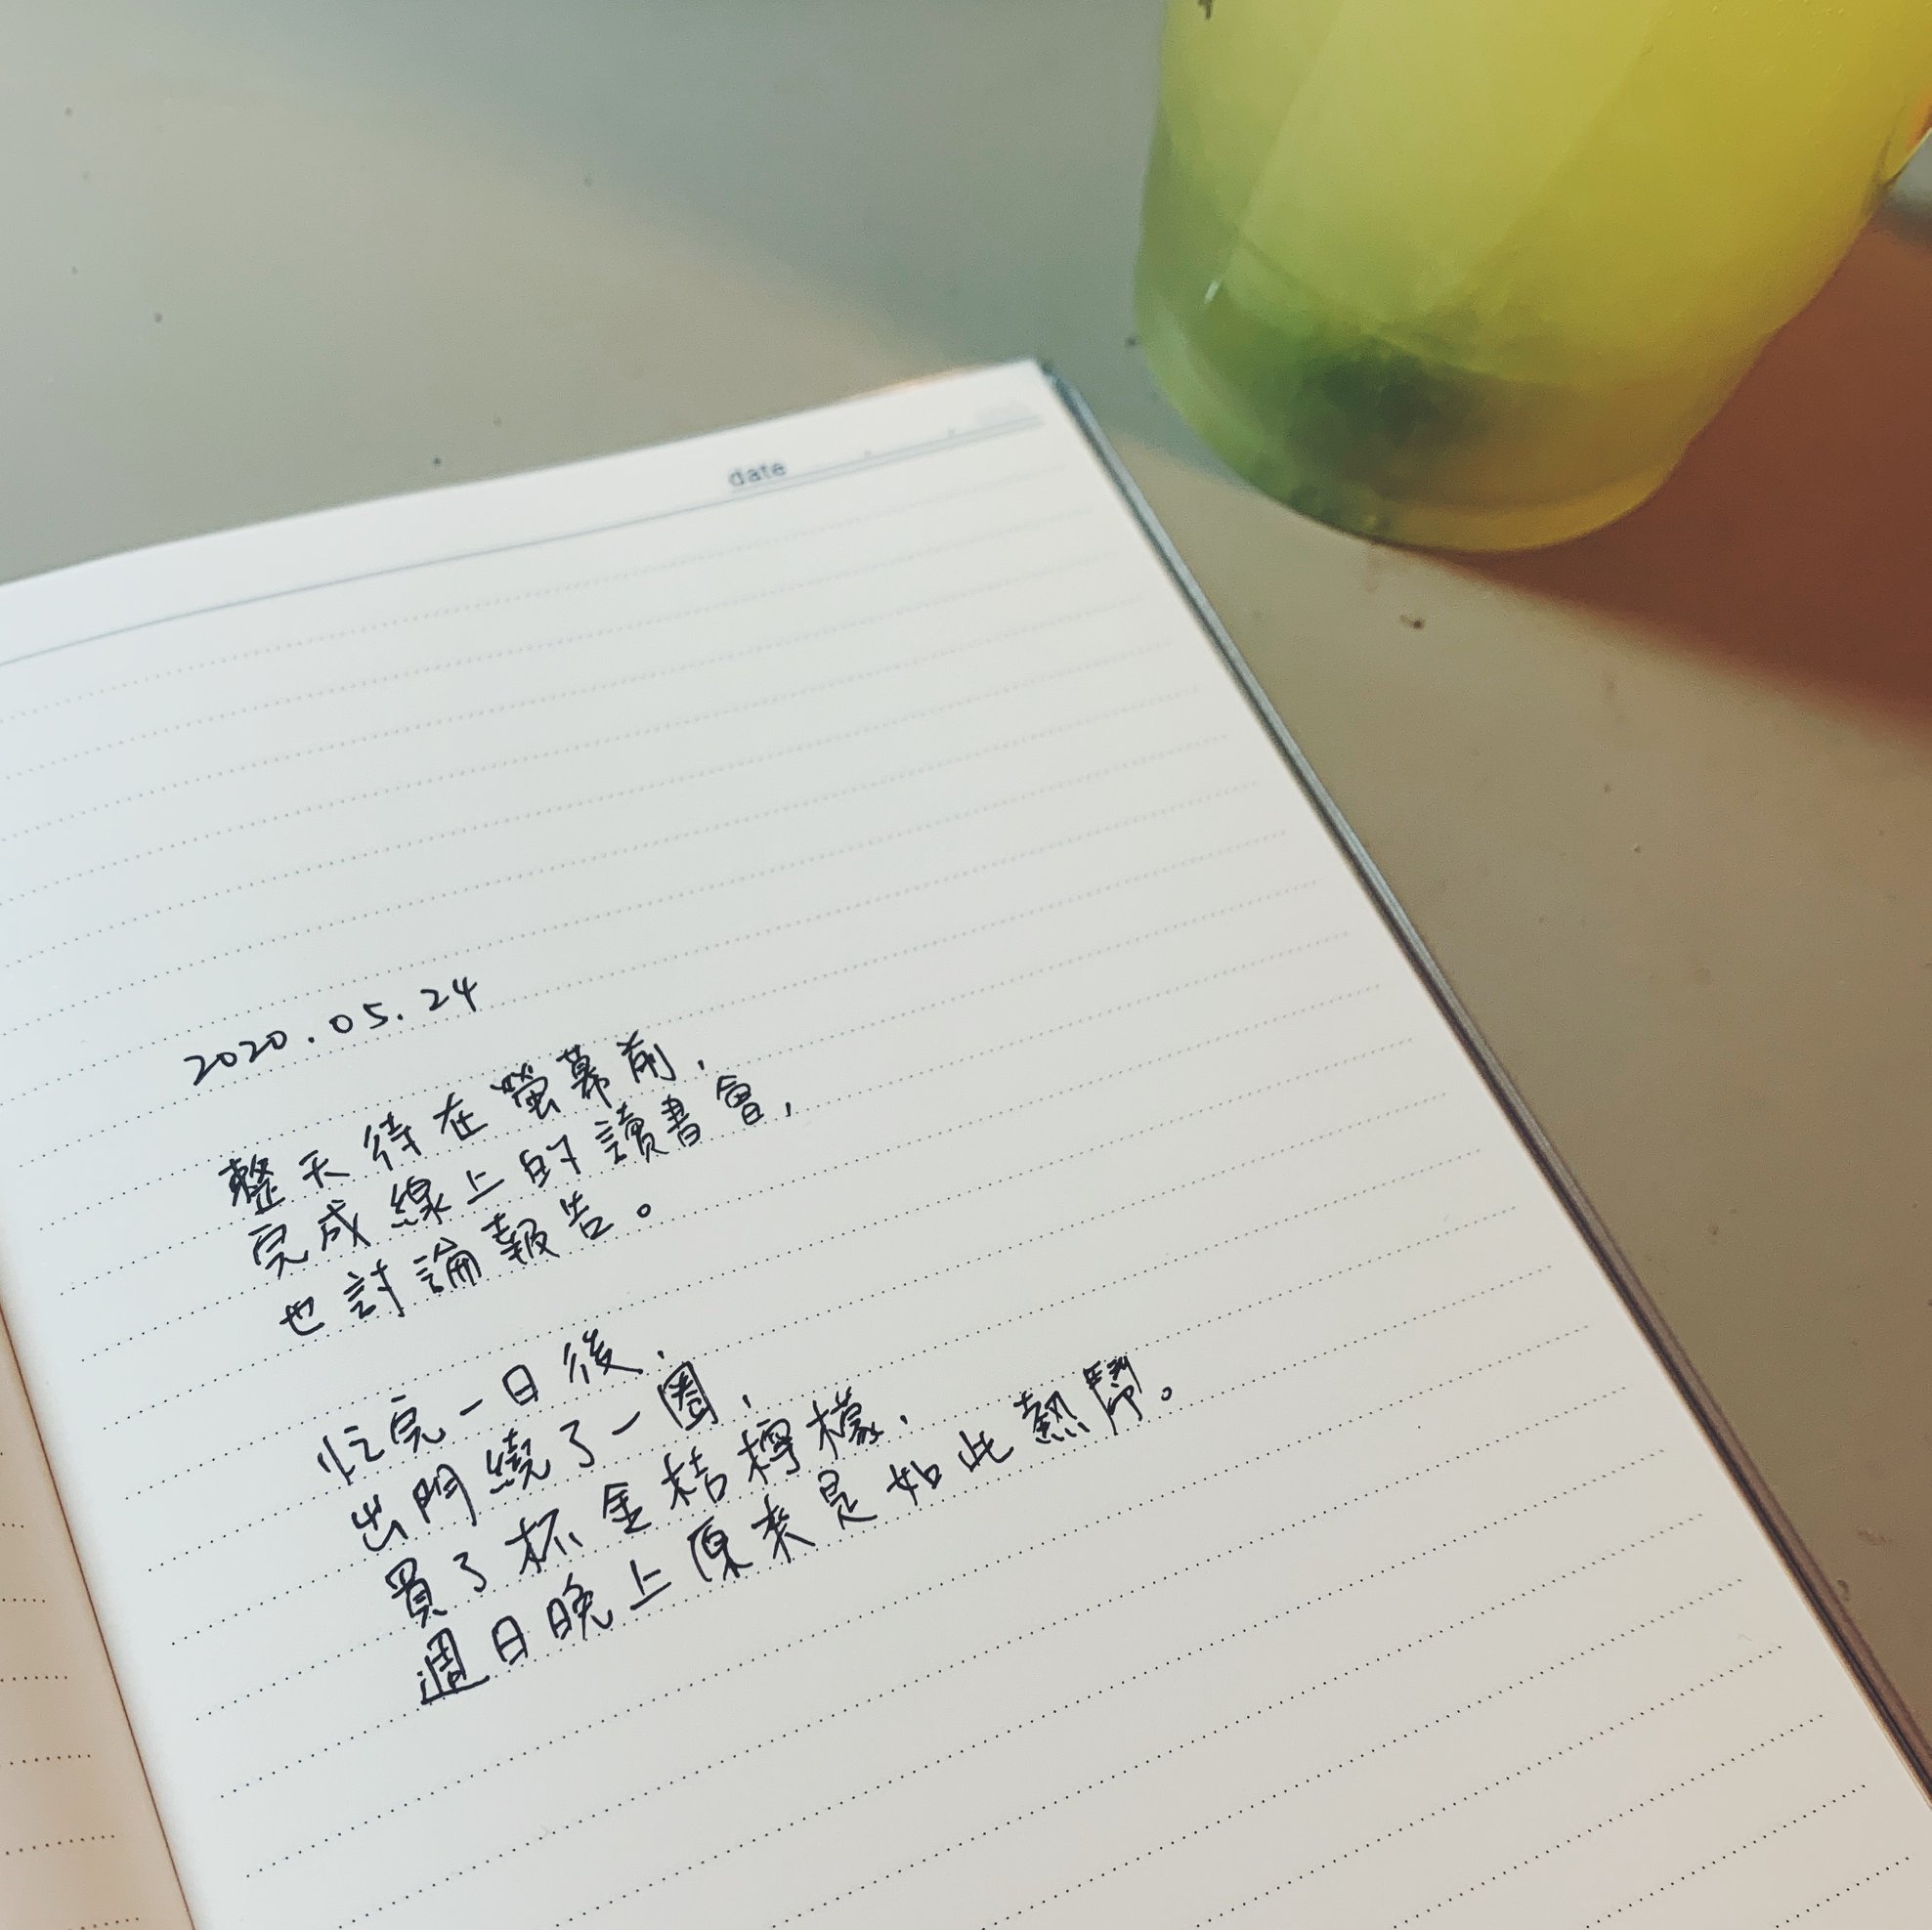 date
2020.05.24
整天待在螢幕前,
完成線上的讀書會,
也討論報告。
忙完一日後,
出門繞了一圈,
買了杯金桔檸檬,
週日晚上原來是如此熱鬧。